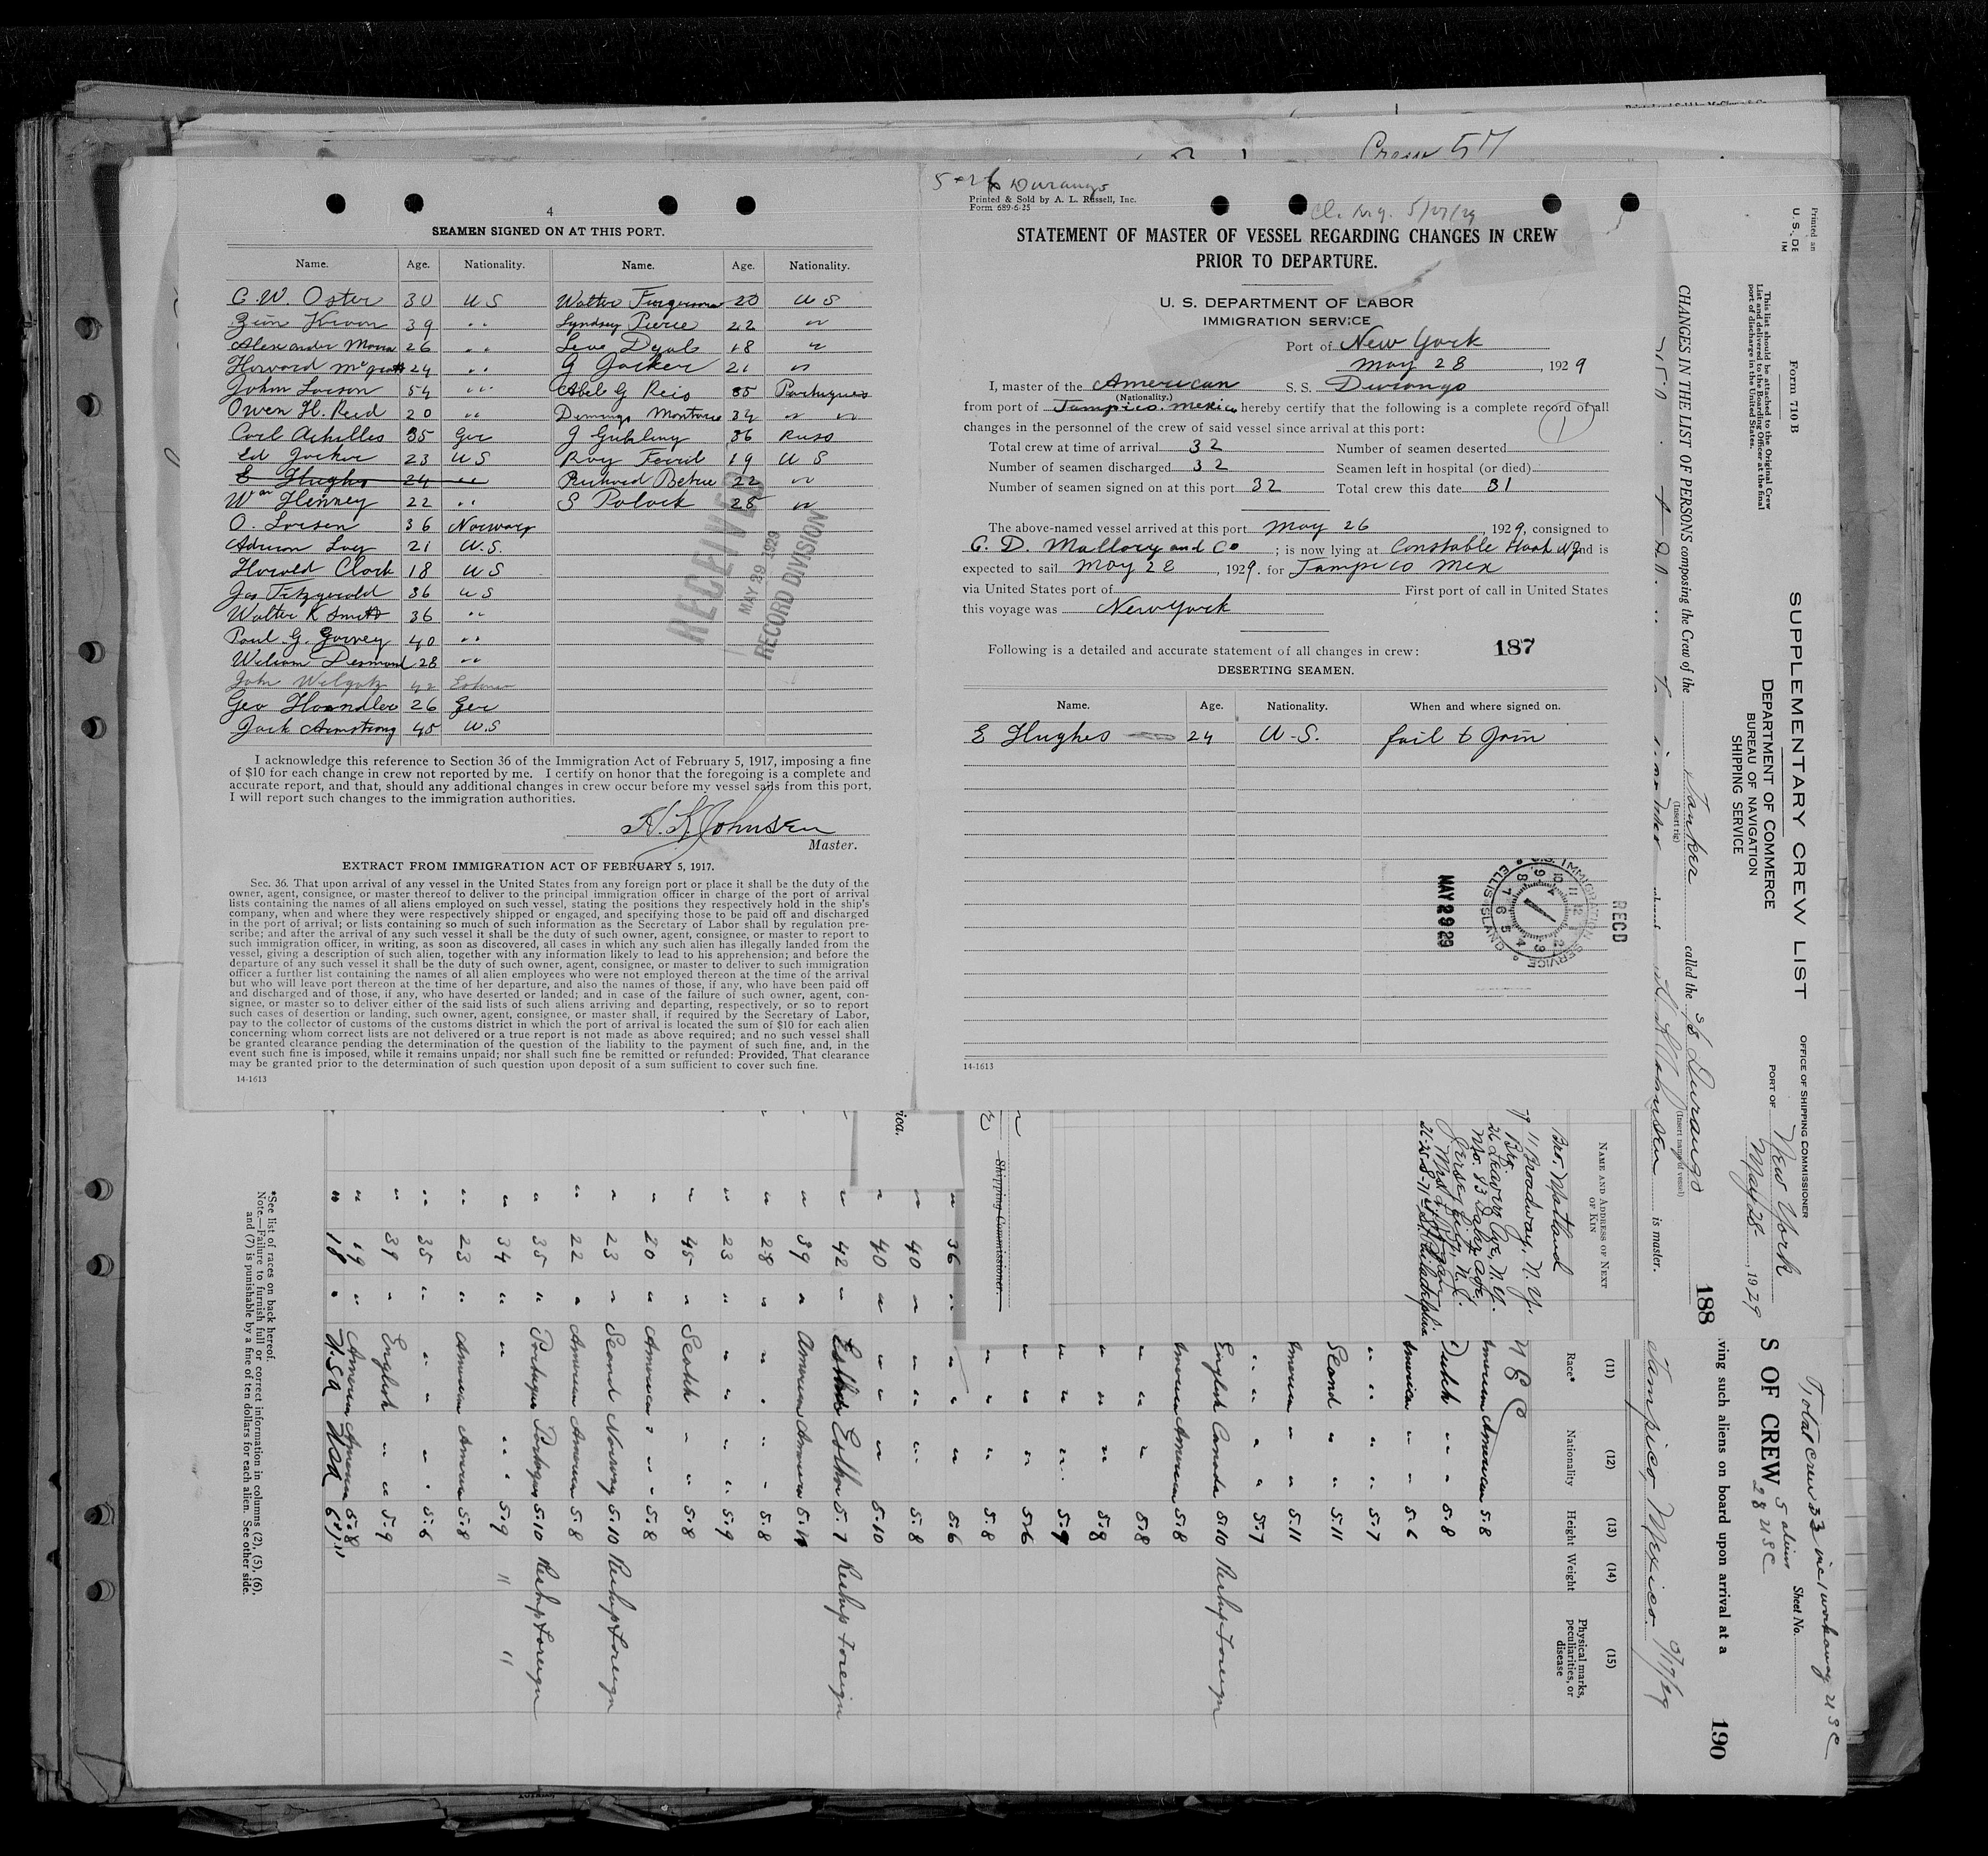 4
SEAMEN SIGNED ON AT THIS PORT.
Name. Age. Nationality. Name. Age. Nationality.
C. W. Oster 30 U S
39 " "
Alexander 26 " "
Howard 24 " "
John Larson 54 " "
Owen H. Reed 20 " "
Carl Achilles 35 Ger
Ed Jocker 23 U S
E Hughs 24 " "
Wm Henney 22 " "
O. Larsen 36 Norway
21 U.S.
Harold Clark 18 U S
Jas Fitzgerald 36 U S
Walter K Smith 36 " "
Paul G. Garvey 40 " "
William Desmond 28 " "
John 42
Geo 26 Ger
Jack Armstrong 45 U.S
Walter 20 U S
Lyndsey Pierce 22 "
18 "
G Jocker 21 "
Abel G Reis 35 Portugues
34 " "
J 36 Russ
Roy 19 U S
Richard 22 "
S Polack 25 "
RECEIVED
MAY 29 1929
RECORD DIVISION
I acknowledge this reference to Section 36 of the Immigration Act of February 5, 1917, imposing a fine
of $10 for each change in crew not reported by me. I certify on honor that the foregoing is a complete and
accurate report, and that, should any additional changes in crew occur before my vessel sails from this port,
I will report such changes to the immigration authorities.
H. K. Johnsen
Master.
EXTRACT FROM IMMIGRATION ACT OF FEBRUARY 5, 1917.
Sec. 36. That upon arrival of any vessel in the United States from any foreign port or place it shall be the duty of the
owner, agent, consignee, or master thereof to deliver to the principal immigration officer in charge of the port of arrival
lists containing the names of all aliens employed on such vessel, stating the positions they respectively hold in the ship's
company, when and where they were respectively shipped or engaged, and specifying those to be paid off and discharged
in the port of arrival; or lists containing so much of such information as the Secretary of Labor shall by regulation pre-
scribe; and after the arrival of any such vessel it shall be the duty of such owner, agent, consignee, or master to report to
such immigration officer, in writing, as soon as discovered, all cases in which any such alien has illegally landed from the
vessel, giving a description of such alien, together with any information likely to lead to his apprehension; and before the
departure of any such vessel it shall be the duty of such owner, agent, consignee, or master to deliver to such immigration
officer a further list containing the names of all alien employees who were not employed thereon at the time of the arrival
but who will leave port thereon at the time of her departure, and also the names of those, if any, who have been paid off
and discharged and of those, if any, who have deserted or landed; and in case of the failure of such owner, agent, con-
signee, or master so to deliver either of the said lists of such aliens arriving and departing, respectively, or so to report
such cases of desertion or landing, such owner, agent, consignee, or master shall, if required by the Secretary of Labor,
pay to the collector of customs of the customs district in which the port of arrival is located the sum of $10 for each alien
concerning whom correct lists are not delivered or a true report is not made as above required; and no such vessel shall
be granted clearance pending the determination of the question of the liability to the payment of such fine, and, in the
event such fine is imposed, while it remains unpaid; nor shall such fine be remitted or refunded: Provided, That clearance
may be granted prior to the determination of such question upon deposit of a sum sufficient to cover such fine.
14-1613
Durango
Printed & Sold by A. L. Russell, Inc.
Form 689-6-25
5/27/29
STATEMENT OF MASTER OF VESSEL REGARDING CHANGES IN CREW
PRIOR TO DEPARTURE.
U. S. DEPARTMENT OF LABOR
IMMIGRATION SERVICE
Port of New York
May 28, 1929
I, master of the American S. S. Durango
(Nationality.)
from port of Tampico. Mexico hereby certify that the following is a complete record of all
changes in the personnel of the crew of said vessel since arrival at this port:
1
Total crew at time of arrival 32 Number of seamen deserted
Number of seamen discharged 32 Seamen left in hospital (or died)
Number of seamen signed on at this port 32 Total crew this date 31
The above-named vessel arrived at this port May 26 1929, consigned to
C. D. Mallory and Co; is now lying at Constable Hook NJ and is
expected to sail May 28, 1929. for Tampico Mex
via United States port of First port of call in United States
this voyage was New York
Following is a detailed and accurate statement of all changes in crew: 187
DESERTING SEAMEN.
Name. Age. Nationality. When and where signed on.
E Hughes 24 U-S. fail to join
RECD
U.S. IMMIGRATION SERVICE ELLIS ISLAND
MAY 29 29
14-1613
Form 710 B
This list should be attached to the Original Crew
List and delivered to the Boarding Officer at the final
port of discharge in the United States.
SUPPLEMENTARY CREW LIST
DEPARTMENT OF COMMERCE
BUREAU OF NAVIGATION
SHIPPING SERVICE
OFFICE OF SHIPPING COMMISSIONER
PORT OF New York
May 28, 1929
CHANGES IN THE LIST OF PERSONS composing the Crew of the Tanker called the SS Durango
(Insert rig) (Insert name of vessel)
is master.
188
NAME AND ADDRESS OF NEXT
OF KIN
Bro. Maitland
11 Broadway, N. Y.
Shipping Commissioner.
Total Crew 33 inc 1 workaway USC
5 aliens
28 USC
Sheet No.
S OF CREW
ving such aliens on board upon arrival at a
190
Tampico, Mexico.
(11) (12) (13) (14) (15)
Race* Nationality Height Weight Physical marks, peculiarities, or disease
American American 5.8
Dutch " " 5.8
American " " 5.6
" " " " 5.7
Scand " " 5.11
American " " 5.11
" " " " 5.7
English Canada 5.10 Reship Foreign
American American 5.8
" " 5.8
" " 5.8
" " 5.9
" " 5.6
" " 5.8
36 " " " 5.6
40 " " " 5.8
40 " " " 5.10
42 " 5.7 Reship Foreign
39 " American American
28 " " " 5.8
23 " " " 5.9
45 " Scotch " " 5.8
20 " American " " 5.8
23 " Scand Norway 5.10 Reship Foreign
22 " American American 5.8
35 " Portugues Portugues 5.10 Reship Foreign
34 " " " 5.9 " "
23 " American American 5.8
35 " " " 5.6
39 " English " " 5.9
19 " American American 5.8
18 " U.S.A USA
*See list of races on back hereof.
Note.—Failure to furnish full or correct information in columns (2), (5), (6),
and (7) is punishable by a fine of ten dollars for each alien. See other side.